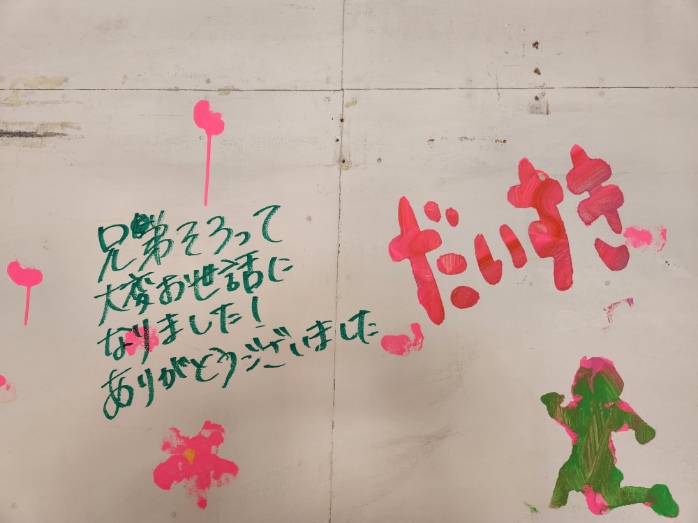 兄弟そろって
大変お世話に
なりました!
ありがとうございました
だいすき